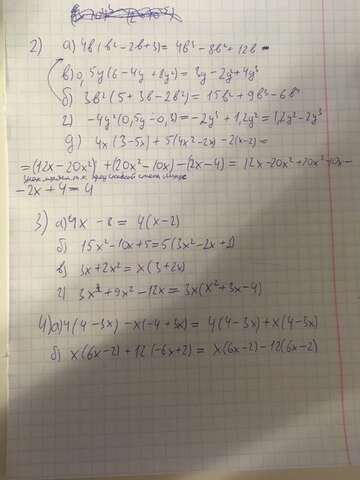 2) а) 4в(в²-2в+3) = 4в³-8в²+12в
в) 0,5y(6-4y+8y²) = 3y-2y+4y³
б) 3в²(5+3в-2в²) = 15в²+9в³-6в⁴
г) -4y²(0,5y-0,3) = -2y³+1,2y² = 1,2y²-2y³
д) 4x(3-5x)+5(4x²-2x)-2(x-2) =
=(12x-20x²)+(20x²-10x)-(2x-4) = 12x-20x²+20x²-10x-
-2x+4=4
3) а) 4x-8 = 4(x-2)
б) 15x²-10x+5=5(3x²-2x+1)
в) 3x+2x² = x(3+2x)
г) 3x³+9x²-12x = 3x(x²+3x-4)
4) а) 4(4-3x)-x(-4+3x) = 4(4-3x)+x(4-3x)
б) x(6x-2)+12(-6x+2) = x(6x-2)-12(6x-2)